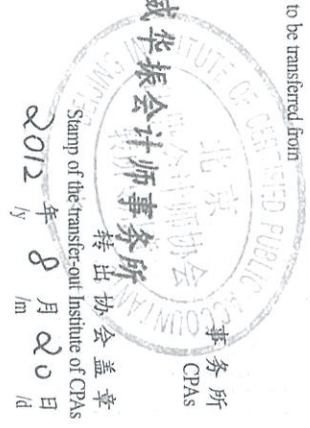 to be transferred from
威华振会计师事务所
事务所
CPAs
INSTITUTE OF CERTIFIED PUBLIC ACCOUNTANTS
北京
会计师协会
转出协会盖章
Stamp of the transfer-out Institute of CPAs
2012年8月20日
/y /m /d